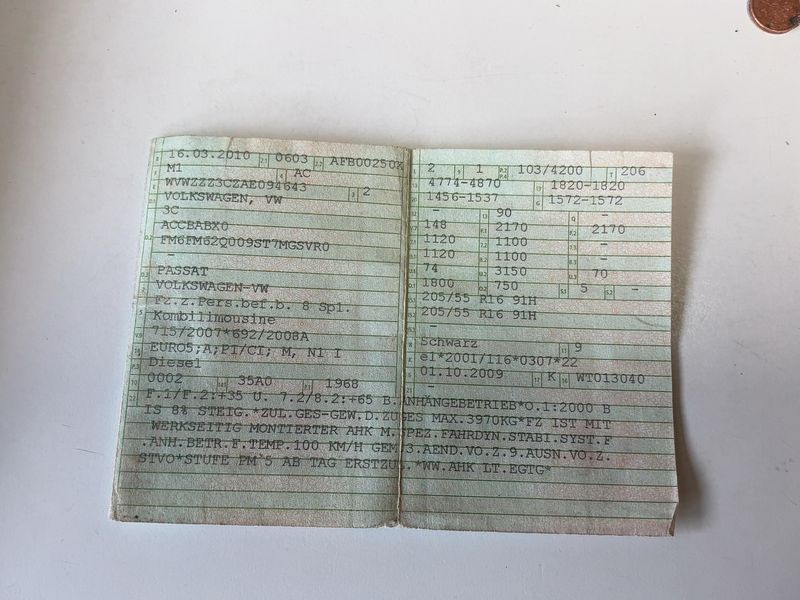 16.03.2010 0603 AFB00250X
M1 AC
WVWZZZ3CZAE094643 2
VOLKSWAGEN, VW
3C
ACCBABX0
FM6FM62Q009ST7MGSVR0
–
PASSAT
VOLKSWAGEN-VW
Fz.z.Pers.bef.b. 8 Spl.
Kombilimousine
715/2007*692/2008A
EURO5;A;PI/CI; M, N1 I
Diesel
0002 35A0 1968
2 1 103/4200 206
4774-4870 1820-1820
1456-1537 1572-1572
– 90 –
148 2170 2170
1120 1100 –
1120 1100 –
74 3150 70
1800 750 5 –
205/55 R16 91H
205/55 R16 91H
–
Schwarz 9
e1*2001/116*0307*22
01.10.2009 K WT013040
–
F.1/F.2:+35 U. 7.2/8.2:+65 B.ANHÄNGEBETRIEB*O.1:2000 B
IS 8% STEIG.*ZUL.GES-GEW.D.ZUGES MAX.3970KG*FZ IST MIT
WERKSEITIG MONTIERTER AHK M.SPEZ.FAHRDYN.STABI.SYST.F
.ANH.BETR.F.TEMP.100 KM/H GEM.3.AEND.VO.Z.9.AUSN.VO.Z.
STVO*STUFE PM 5 AB TAG ERSTZUL.*WW.AHK LT.EGTG*